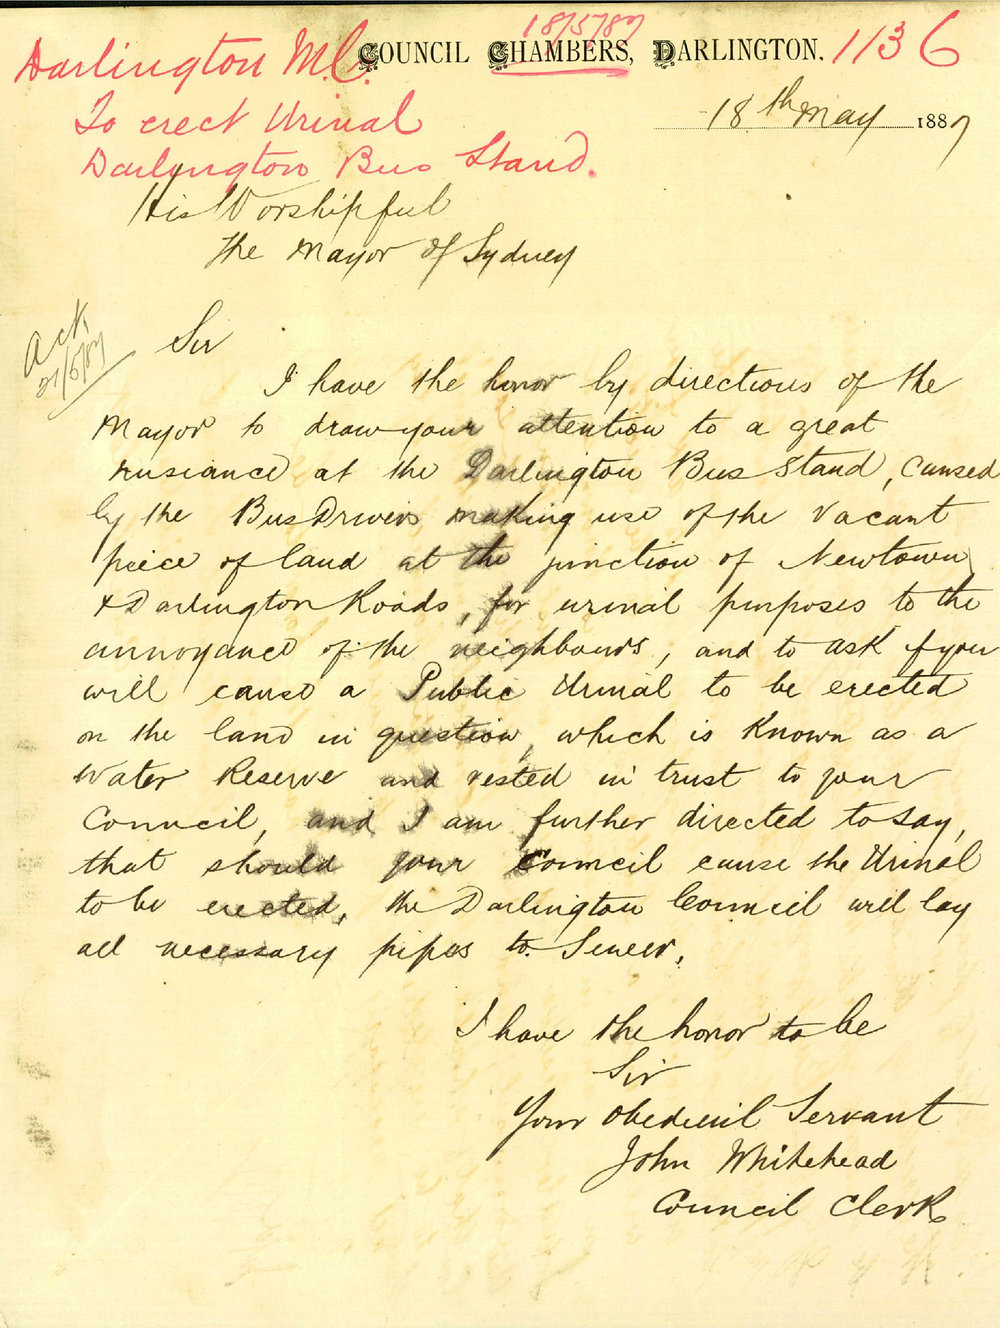 18/5/87
Darlington M.C. COUNCIL CHAMBERS, DARLINGTON. 1136
To erect Urinal
Darlington Bus Stand.
18th May 1887
His Worshipful
The Mayor of Sydney
Ack
21/5/87
Sir
I have the honor by directions of the
Mayor to draw your attention to a great
nusiance at the Darlington Bus Stand, caused
by the Bus Drivers making use of the vacant
peice of land at the junction of Newtown
& Darlington Roads, for urinal purposes to the
annoyance of the neighbours, and to ask if you
will cause a Public Urinal to be erected
on the land in question, which is known as a
Water Reserve and vested in trust to your
Council, and I am further directed to say,
that should your Council cause the Urinal
to be erected, the Darlington Council will lay
all necessary pipes to Sewer.
I have the honor to be
Sir
Your Obedient Servant
John Whitehead
Council Clerk